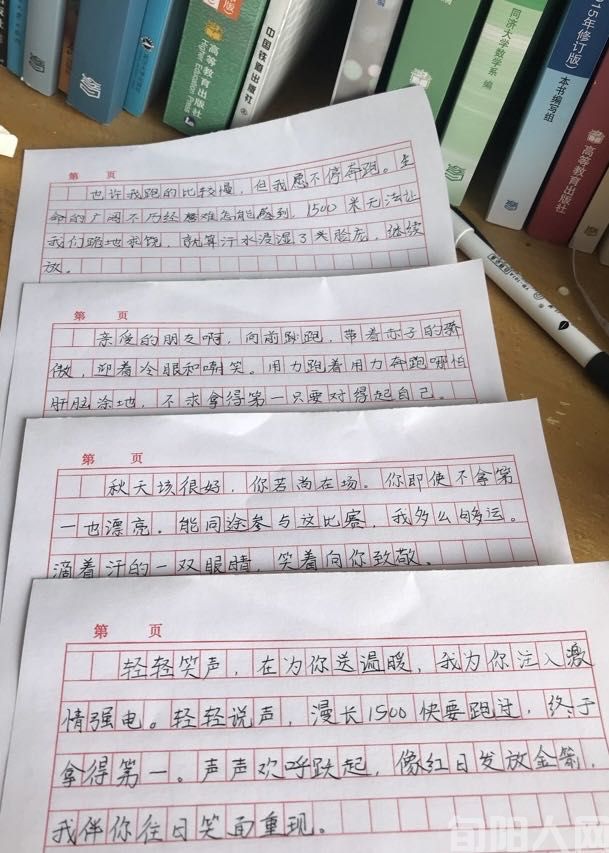 高等教育出版社
Higher Education Press
中国铁道出版社
同济大学数学系 编
15年修订版)
本书编写组
高等教育出版社
第 页
也许我跑的比较慢,但我愿不停奔跑。生
命的广阔不历经磨难怎能感到,1500米无法让
我们跪地求饶,就算汗水浸湿了
脸庞,继续
放。
第 页
亲爱的朋友啊,向前跑,带着赤子的骄
傲,迎着冷眼和嘲笑。用力跑着用力奔跑哪怕
肝脏涂地,不求拿得第一只要对得起自己。
第 页
秋天该很好,你若尚在场。你即使不拿第
一也漂亮。能同途参与这比赛,我多么够运。
滴着汗的一双眼睛,笑着向你致敬。
第 页
轻轻笑声,在为你送温暖,我为你注入激
情强电。轻轻说声,漫长1500快要跑过,终于
拿得第一。声声欢呼跃起,像红日发放金箭,
我伴你往日笑面重现。
旬阳人网